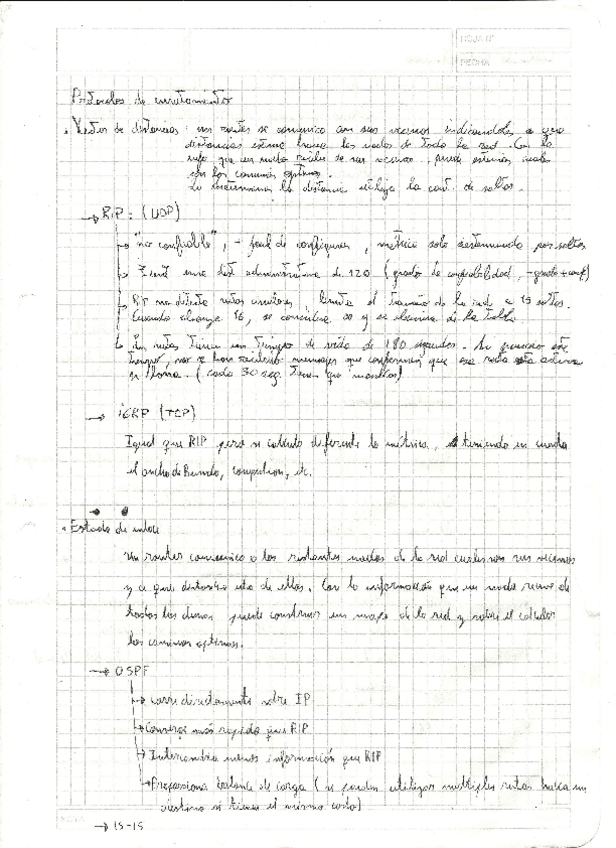 HOJA Nº
FECHA
Protocolos de enrutamiento
Vector de distancias: un router se comunica con sus vecinos indicandoles a que
distancias estima tiene los nodos de toda la red. Con la
info que un nodo recibe de sus vecinos, puede estimar cuales
son los caminos optimos.
La determina la distancia utiliza la cant. de saltos.
→ RIP: (UDP)
"no confiable", facil de configurar, métrica solo determinada por saltos
Tiene una dist administrativa de 120 (grado de confiabilidad, -grado +conf)
RIP no detecta rutas circulares, limita el tamaño de la red a 15 saltos.
Cuando alcanza 16, se considera ∞ y se elimina de la tabla
Las rutas tienen un tiempo de vida de 180 segundos. Si pasado este
tiempo, no se han recibido mensajes que confirmen que esa ruta está activa
se borra. (cada 30 seg. tienen que mandar)
→ IGRP (TCP)
Igual que RIP pero se calcula diferente la métrica, teniendo en cuenta
el ancho de Banda, etc.
Estado de enlace
Un router comunica a los restantes nodos de la red cuales son sus vecinos
y a que distancia esta de ellos. Con la información que un nodo recibe de
todos los demas puede construir un mapa de la red y sobre el calcular
los caminos optimos.
→ OSPF
→ corre directamente sobre IP
→ Converge más rapido que RIP
→ Intercambia menos información que RIP
→ Proporciona balance de carga (se pueden utilizar multiples rutas hacia un
destino si tienen el mismo costo)
→ IS-IS